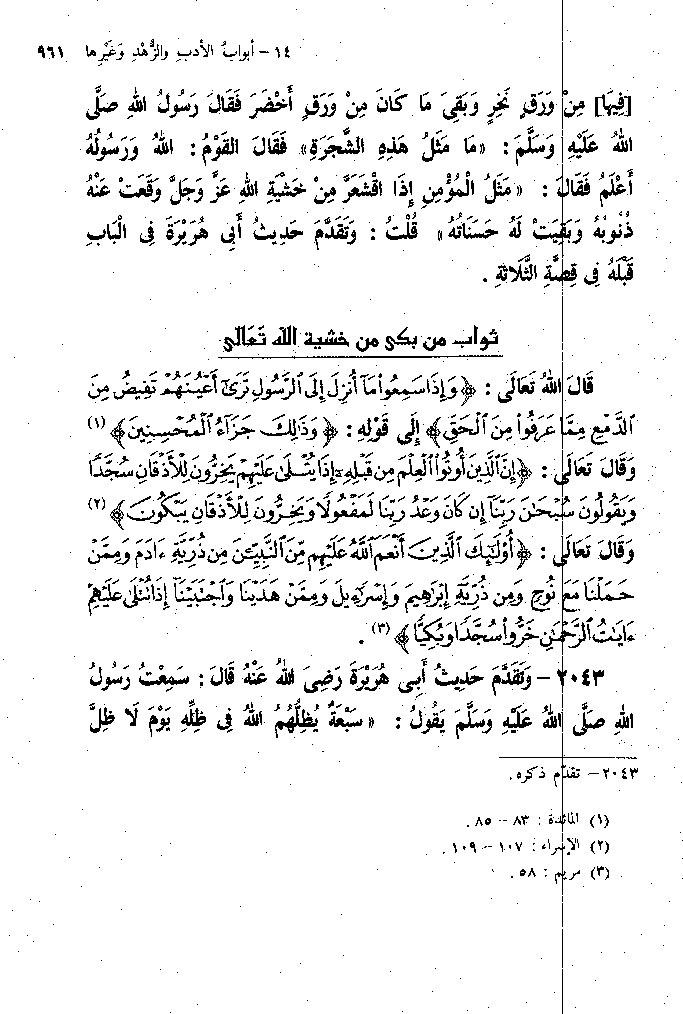 ١٤ - أبوابُ الأدبِ والزُّهْدِ وَغَيْرِها ٩٦١
[فِيهَا] مِنْ وَرَقٍ نَخِرٍ وَبَقِيَ مَا كَانَ مِنْ وَرَقٍ أَخْضَرَ فَقَالَ رَسُولُ اللهِ صَلَّى
اللهُ عَلَيْهِ وَسَلَّمَ : « مَا مَثَلُ هَذِهِ الشَّجَرَةِ» فَقَالَ القَوْمُ : اللهُ وَرَسُولُهُ
أَعْلَمُ فَقَالَ : « مَثَلُ الْمُؤْمِنِ إِذَا اقْشَعَرَّ مِنْ خَشْيَةِ اللهِ عَزَّ وَجَلَّ وَقَعَتْ عَنْهُ
ذُنُوبُهُ وَبَقِيَتْ لَهُ حَسَنَاتُهُ » قُلْتُ : وَتَقَدَّمَ حَدِيثُ أَبِي هُرَيْرَةَ فِي الْبَابِ
قَبْلَهُ فِي قِصَّةِ الثَّلَاثَةِ .
ثواب من بكى من خشية الله تَعَالى
قَالَ اللهُ تَعَالَى : ﴿ وَإِذَا سَمِعُوا۟ مَآ أُنزِلَ إِلَى ٱلرَّسُولِ تَرَىٰٓ أَعْيُنَهُمْ تَفِيضُ مِنَ
ٱلدَّمْعِ مِمَّا عَرَفُوا۟ مِنَ ٱلْحَقِّ ﴾ إِلَى قَوْلِهِ : ﴿ وَذَٰلِكَ جَزَآءُ ٱلْمُحْسِنِينَ ﴾ (١)
وَقَالَ تَعَالَى : ﴿ إِنَّ ٱلَّذِينَ أُوتُوا۟ ٱلْعِلْمَ مِن قَبْلِهِۦٓ إِذَا يُتْلَىٰ عَلَيْهِمْ يَخِرُّونَ لِلْأَذْقَانِ سُجَّدًا
وَيَقُولُونَ سُبْحَٰنَ رَبِّنَآ إِن كَانَ وَعْدُ رَبِّنَا لَمَفْعُولًا وَيَخِرُّونَ لِلْأَذْقَانِ يَبْكُونَ ﴾ (٢)
وَقَالَ تَعَالَى : ﴿ أُو۟لَٰٓئِكَ ٱلَّذِينَ أَنْعَمَ ٱللَّهُ عَلَيْهِم مِّنَ ٱلنَّبِيِّـۧنَ مِن ذُرِّيَّةِ ءَادَمَ وَمِمَّنْ
حَمَلْنَا مَعَ نُوحٍ وَمِن ذُرِّيَّةِ إِبْرَٰهِيمَ وَإِسْرَٰٓءِيلَ وَمِمَّنْ هَدَيْنَا وَٱجْتَبَيْنَآ إِذَا تُتْلَىٰ عَلَيْهِمْ
ءَايَٰتُ ٱلرَّحْمَٰنِ خَرُّوا۟ سُجَّدًا وَبُكِيًّا ﴾ (٣) .
٢٠٤٣ - وَتَقَدَّمَ حَدِيثُ أَبِي هُرَيْرَةَ رَضِيَ اللهُ عَنْهُ قَالَ : سَمِعْتُ رَسُولَ
اللهِ صَلَّى اللهُ عَلَيْهِ وَسَلَّمَ يَقُولُ : « سَبْعَةٌ يُظِلُّهُمُ اللهُ فِي ظِلِّهِ يَوْمَ لَا ظِلَّ
٢٠٤٣ - تقدّم ذكره .
(١) المائدة : ٨٣ - ٨٥ .
(٢) الإسراء : ١٠٧ - ١٠٩ .
(٣) مريم : ٥٨ .